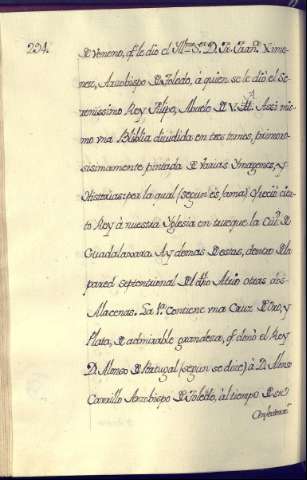 294.
de Veneno, q.e le dio el Ill.mo S.r D. Fr. Fran.co Xime-
nez, Arzobispo de Toledo, à quien se le dio el Se-
renissimo Rey Felipe, Abuelo de V. M. Assi mis-
mo vna Biblia diuidida en tres tomos, primoro-
sissimamente pintada de varias Ymagenes, y
Historias: por la qual (segun es fama) ofreciò cier-
to Rey à nuestra Yglesia en trueque la Ciu.d de
Guadalaxara. Ay demas de estas, dentro de la
pared septentrional del dho Atrio otras dos
Alacenas. La 1.a Contiene vna Cruz de Oro, y
Plata, de admirable grandeza, q.e donò el Rey
D. Alonso de Portugal (segun se dice) à D. Alonso
Carrillo Arzobispo de Toledo, àl tiempo de su